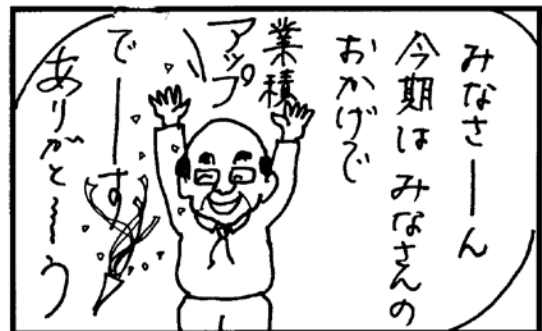 みなさーーん
今期はみなさんの
おかげで
業積
アップ
でーーす
ありがと〜〜う